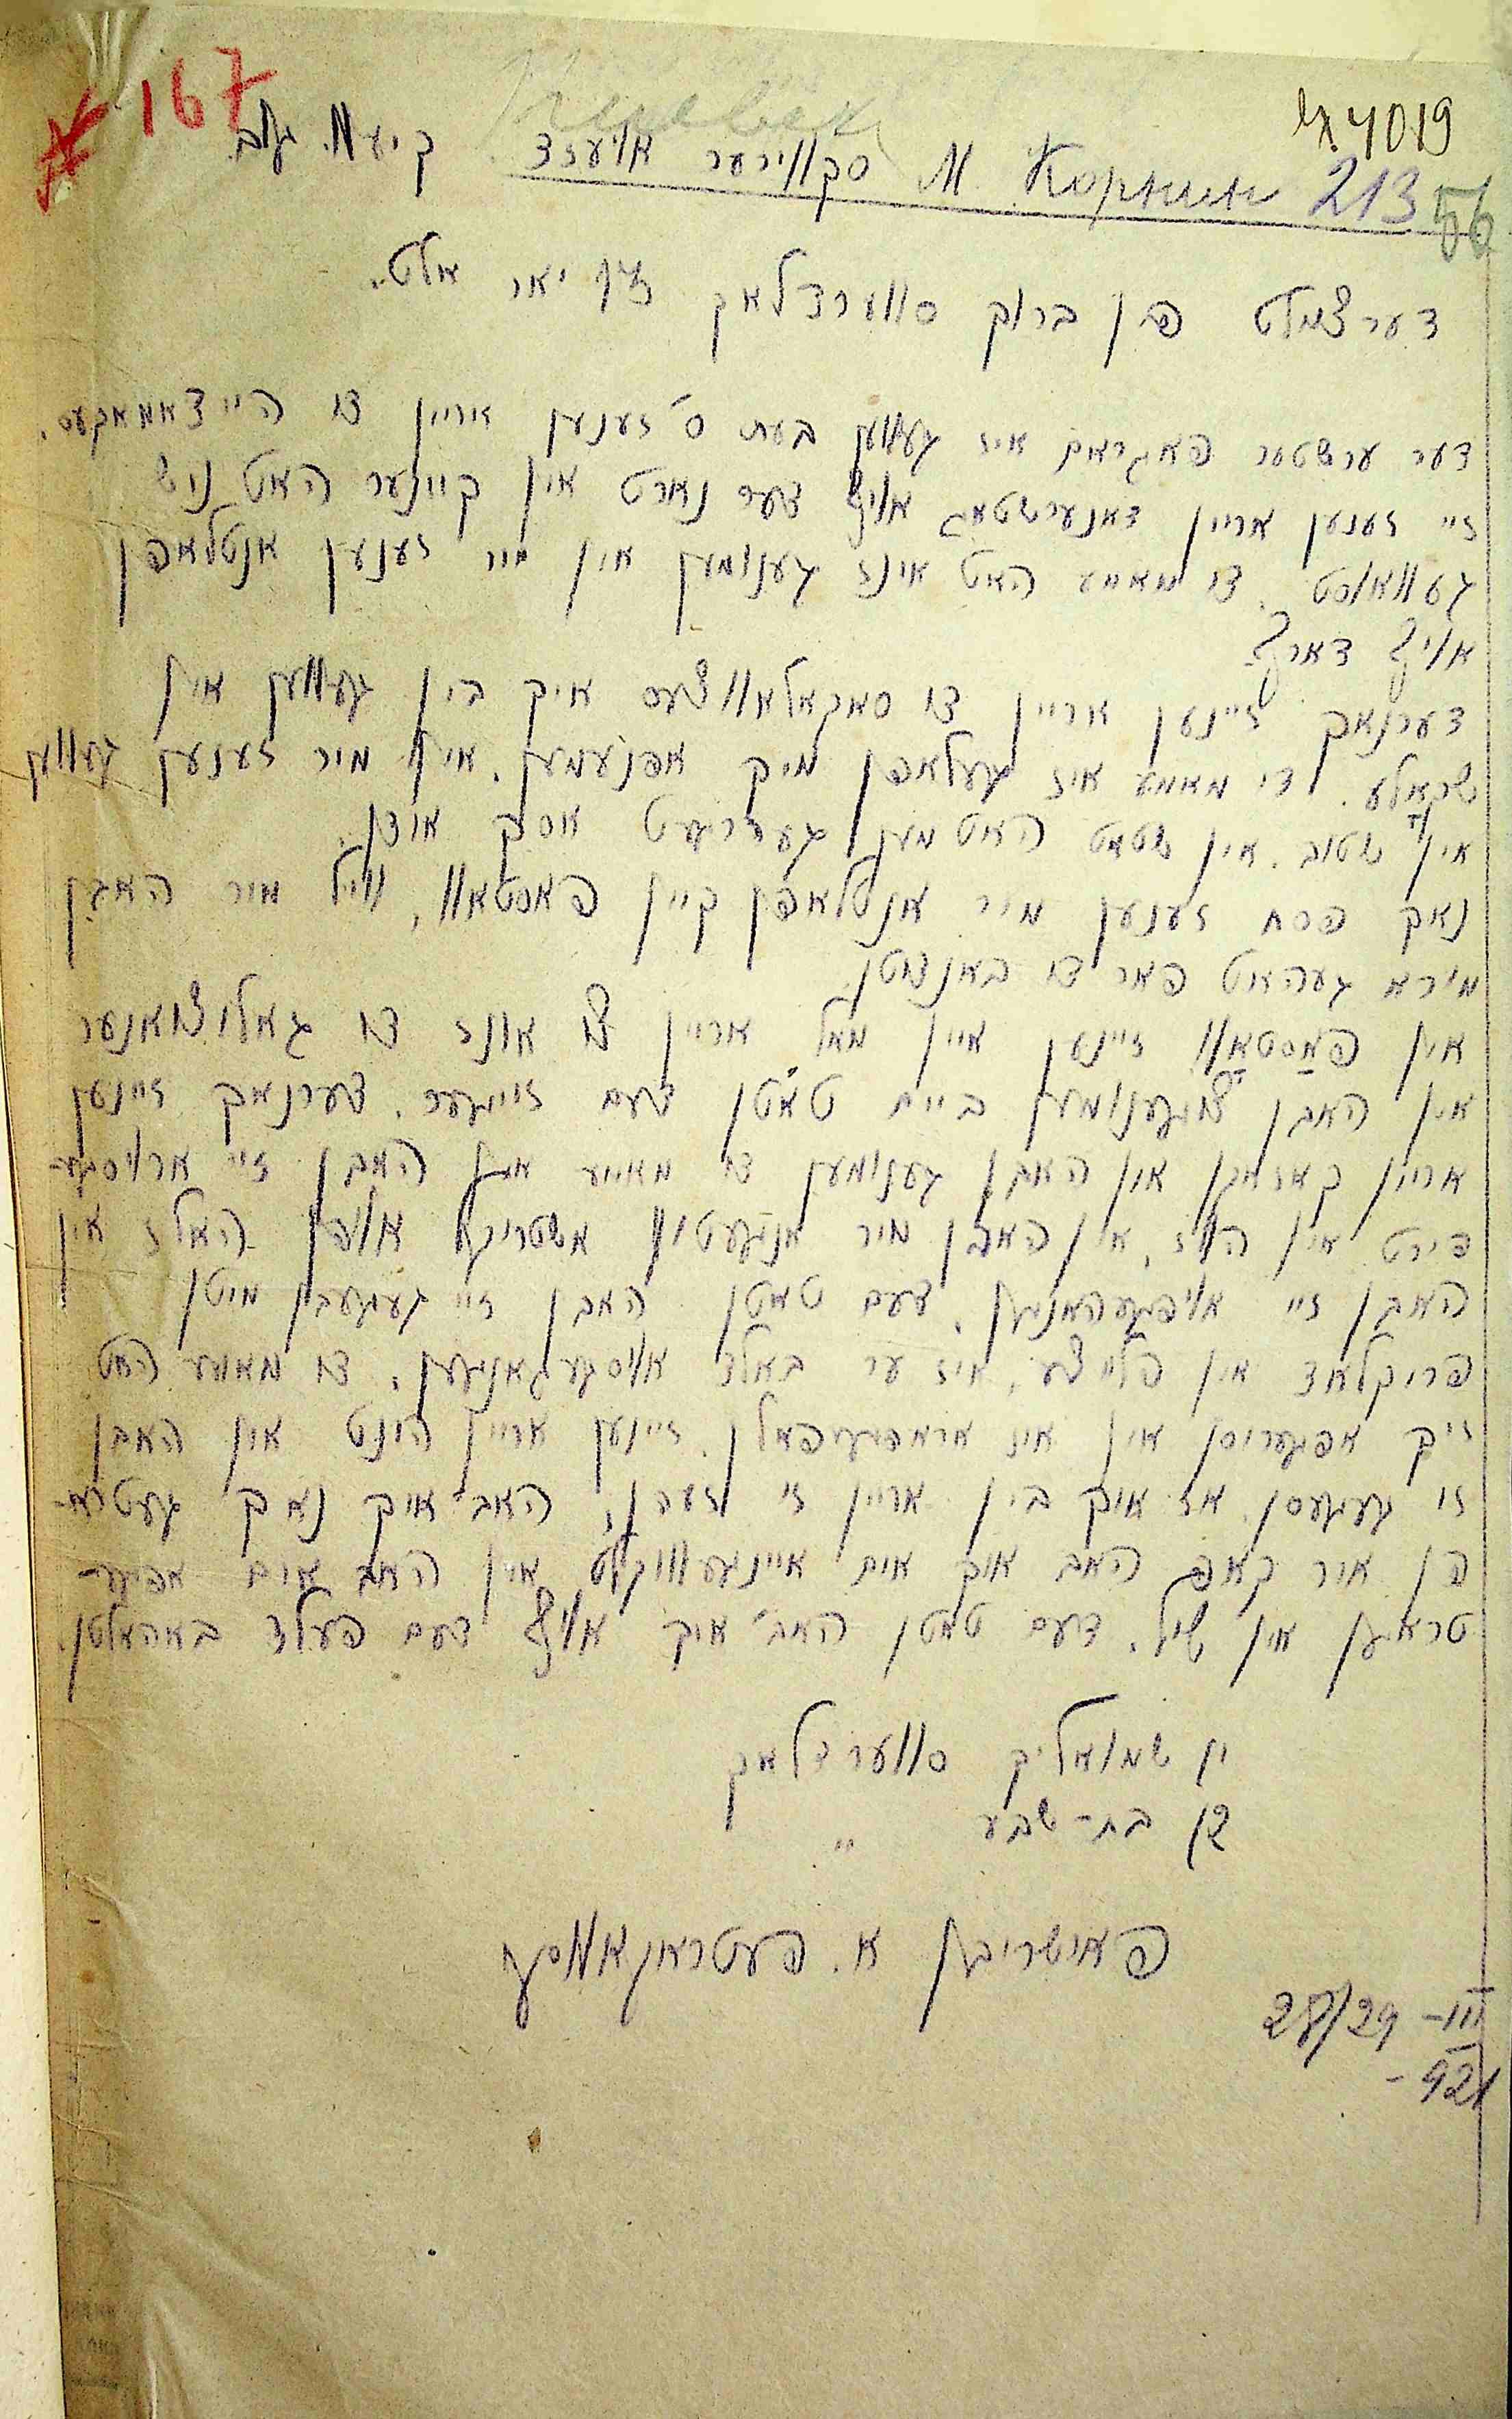 167
4019
М. Корнин סקווירער אויעזד קיעוו. גוב.
213 56
דערצײלט פון ברוך סווערדלאק יאר אלט.
דער ערשטער פאגראם איז געווען בעת ס'זענען אריין די היידאמאקעס.
זיי זענען אריין דאנערשטאג אויף דער נאכט אין קיינער האט ניש
געוואוסט. די מאמע האט אינז גענומען אין מיר זענען אנטלאפן
אויף דארף.
דערנאך זיינען אריין די סאקאלאווצעס איך בין געווען אין
שקאלע. די מאמע איז געלאפן מיך אפנעמען. אין מיר זענען געווען
אין שטוב. אין שטאט האט מען געהרגעט אסך אידן.
נאך פסח זענען מיר אנטלאפן קיין פאסטאוו, ווייל מיר האבן
מירא געהאט פאר די באנדיטן.
אין פאסטאוו זיינען איין מאל אריין צו אונז די גאליציאנער
אין האבן צוגענומען ביים טאטן דעם זייגער. דערנאך זיינען
אריין קאזאקן און האבן גענומען די מאמע אין האבן זיי ארויסגע-
פירט אין הויז, אין האבן מיר אנגעטון אשטריק אויפן האלז אין
האבן זיי אויפגעהאנגען. דעם טאטן האבן זיי געגעבן מיטן
פריקלאד אין פלייצע, איז ער באלד אויסגעגאנגען. די מאמע האט
זיך אפגעריסן אין איז אראפגעפאלן. זיינען אריין הינט און האבן
זי געגעסן. אז איך בין אריין זי זעהן, האב איך נאך געטראפ-
ן איר קאפ האב איך אים איינגעוויקלט אין האב אים אפגע-
טראגן אין שיל. דעם טאטן האב איך אויף דעם פעלד באהאלטן.
שמואליק סווערדלאק
בת-שבע "
פארשריבן א. פעטראנאווסקי
28/29 - III
- 921